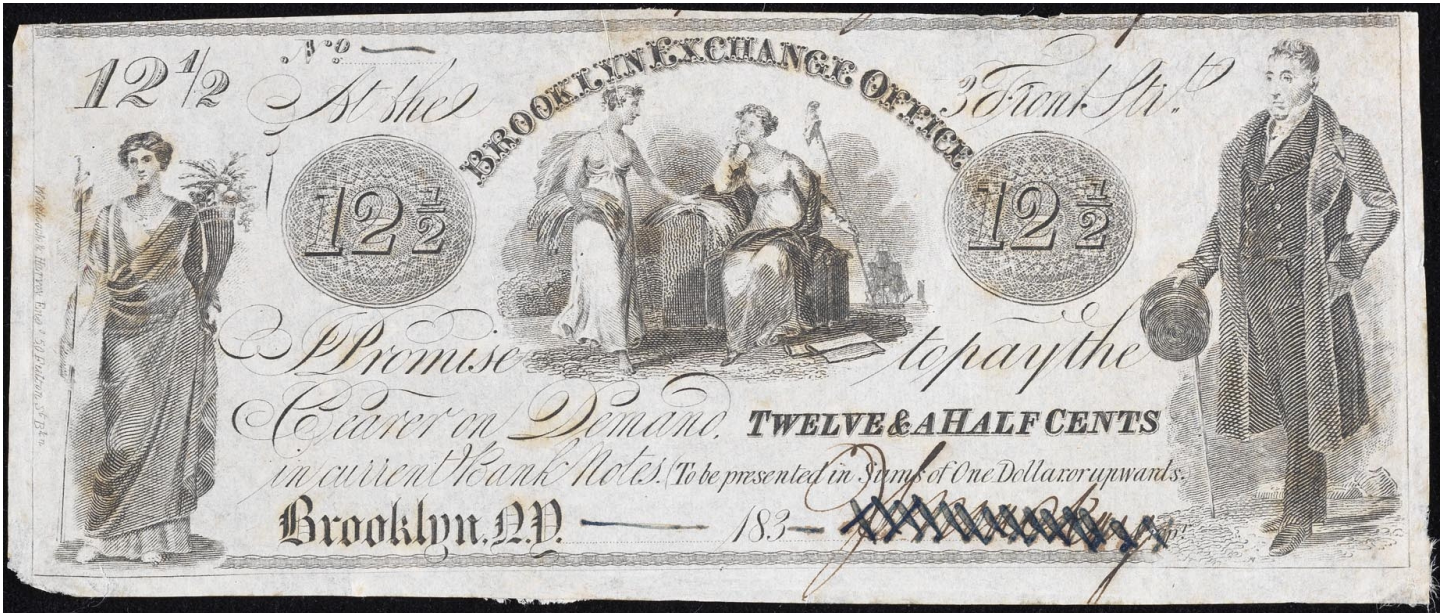 12 1/2
No
At the BROOKLYN EXCHANGE OFFICE 3 Front Strt
12 1/2 12 1/2
I Promise to pay the
Bearer on Demand. TWELVE & A HALF CENTS
in current Bank Notes. (To be presented in Sums of One Dollar or upwards.
Brooklyn. N.Y. 183
& Harrison Engs 50 Fulton St Bkn.